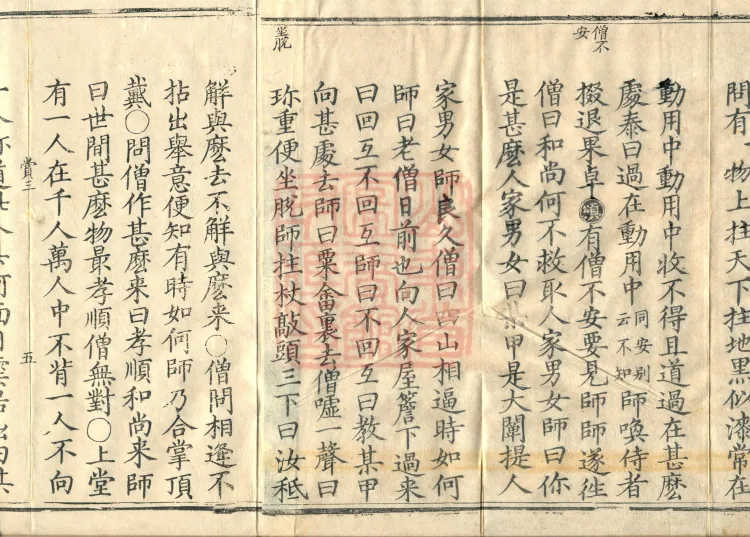 問有一物上拄天下拄地黑似漆常在
動用中動用中收不得且道過在甚麽
處泰曰過在動用中同安別云不知師喚侍者
掇退果卓頌有僧不安要見師師遂徃
僧曰和尚何不救取人家男女師曰你
是甚麽人家男女曰某甲是大闡提人
家男女師良久僧曰四山相逼時如何
師曰老僧日前也向人家屋簷下過来
曰回互不回互師曰不回互曰教某甲
向甚處去師曰粟畬裏去僧嘘一聲曰
珎重便坐脫師拄杖敲頭三下曰汝秖
解與麽去不解與麽来〇僧問相逢不
拈出舉意便知有時如何師乃合掌頂
戴〇問僧作甚麽来曰孝順和尚来師
曰世間甚麽物最孝順僧無對〇上堂
有一人在千人萬人中不背一人不向
僧不安
坐脫
賞三
五